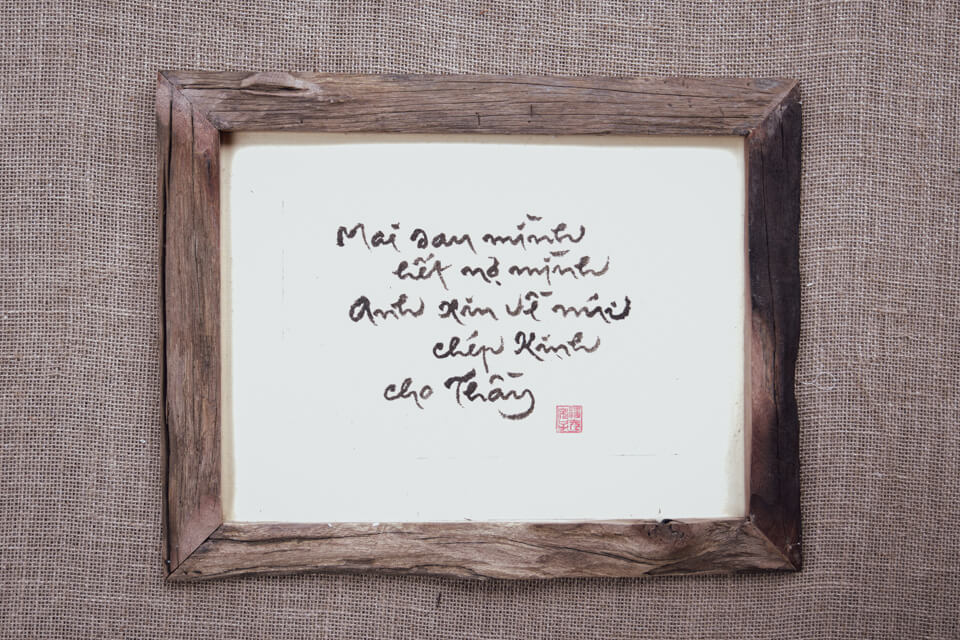 Mai sau mình
hết nợ mình
Anh xin về núi
chép Kinh
cho Thầy